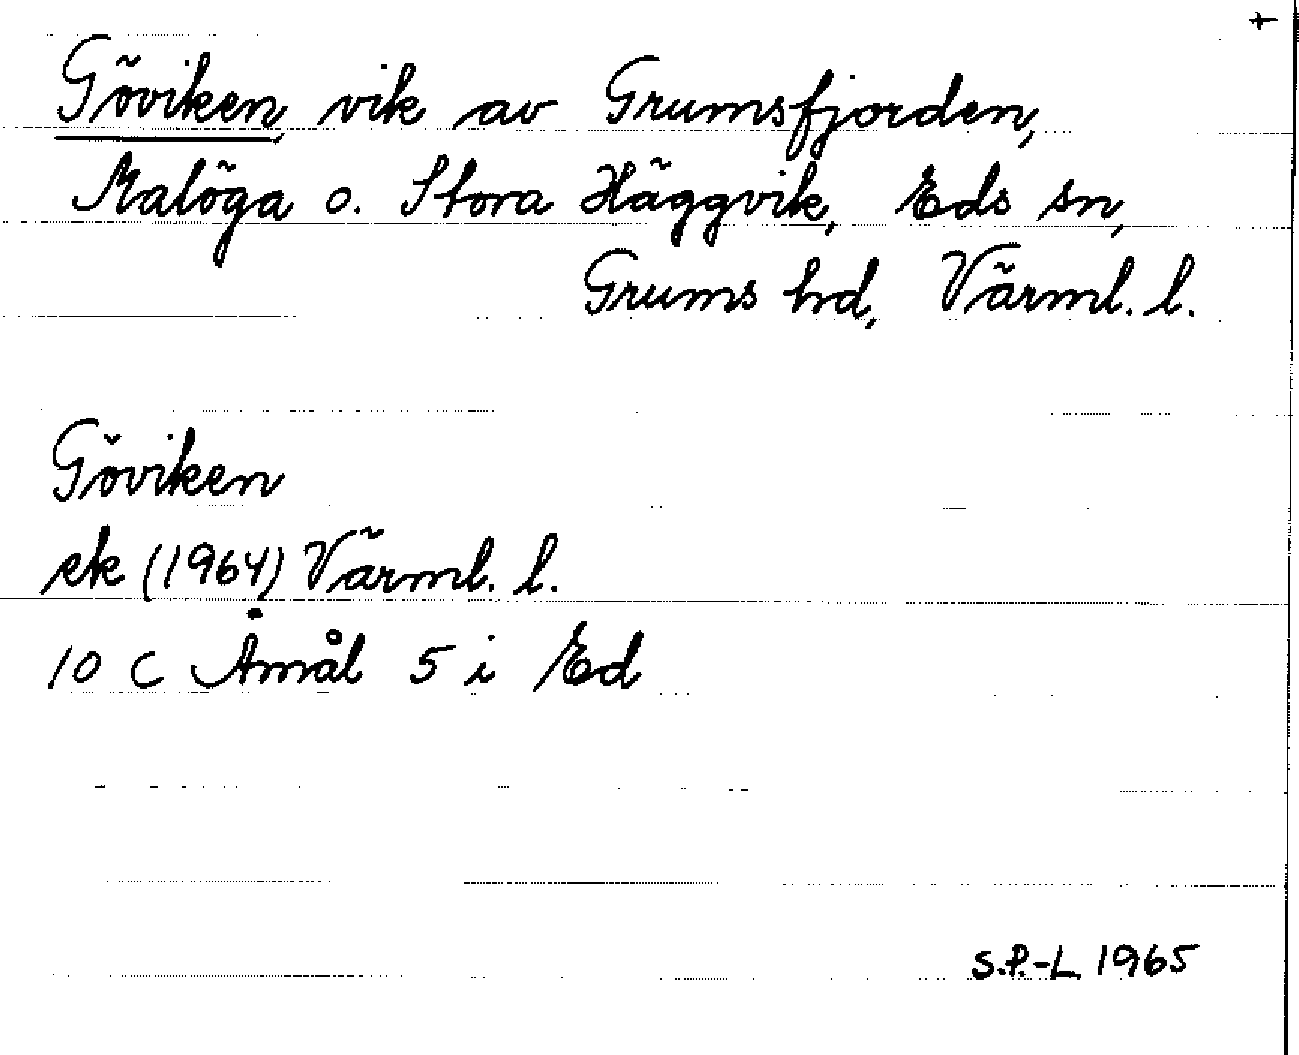 +
Göviken, vik av Grumsfjorden,
Malöga o. Stora Häggvik, Eds sn,
Grums hd, Värml. l.
Göviken
ek (1964) Värml. l.
10 C Åmål 5 i Ed
S.P.-L 1965